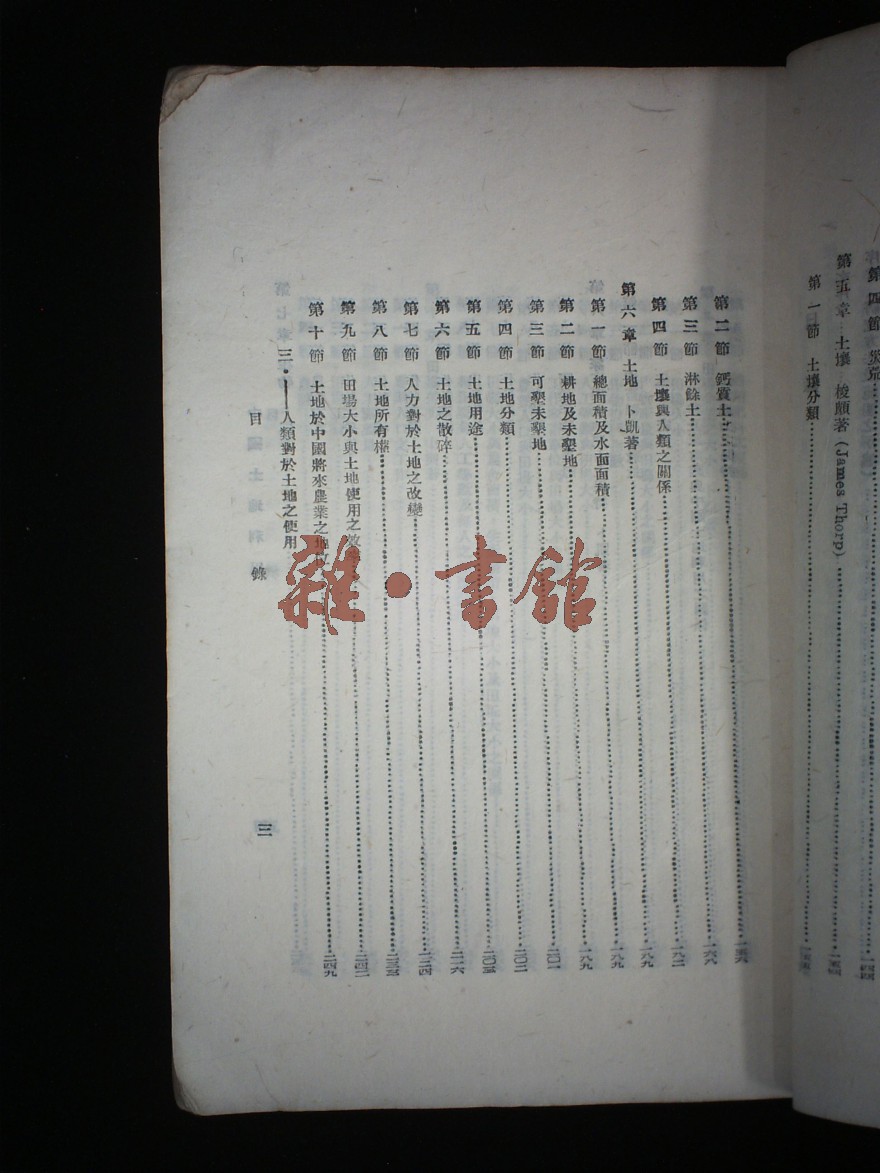 第四節 災荒
第五章 土壤 梭頗著 (James Thorp)
第一節 土壤分類
第二節 鈣質土 一五六
第三節 淋餘土 一六八
第四節 土壤與人類之關係 一八二
第六章 土地 卜凱著 一八九
第一節 總面積及水面面積 一八九
第二節 耕地及未墾地 一八九
第三節 可墾未墾地 二〇一
第四節 土地分類 二〇二
第五節 土地用途 二〇五
第六節 土地之散碎 二一六
第七節 人力對於土地之改變 二二四
第八節 土地所有權 二三三
第九節 田場大小與土地使用之效 二四二
第十節 土地於中國將來農業之地 二四九
三・——人類對於土地之使用
目錄
三
雜・書館